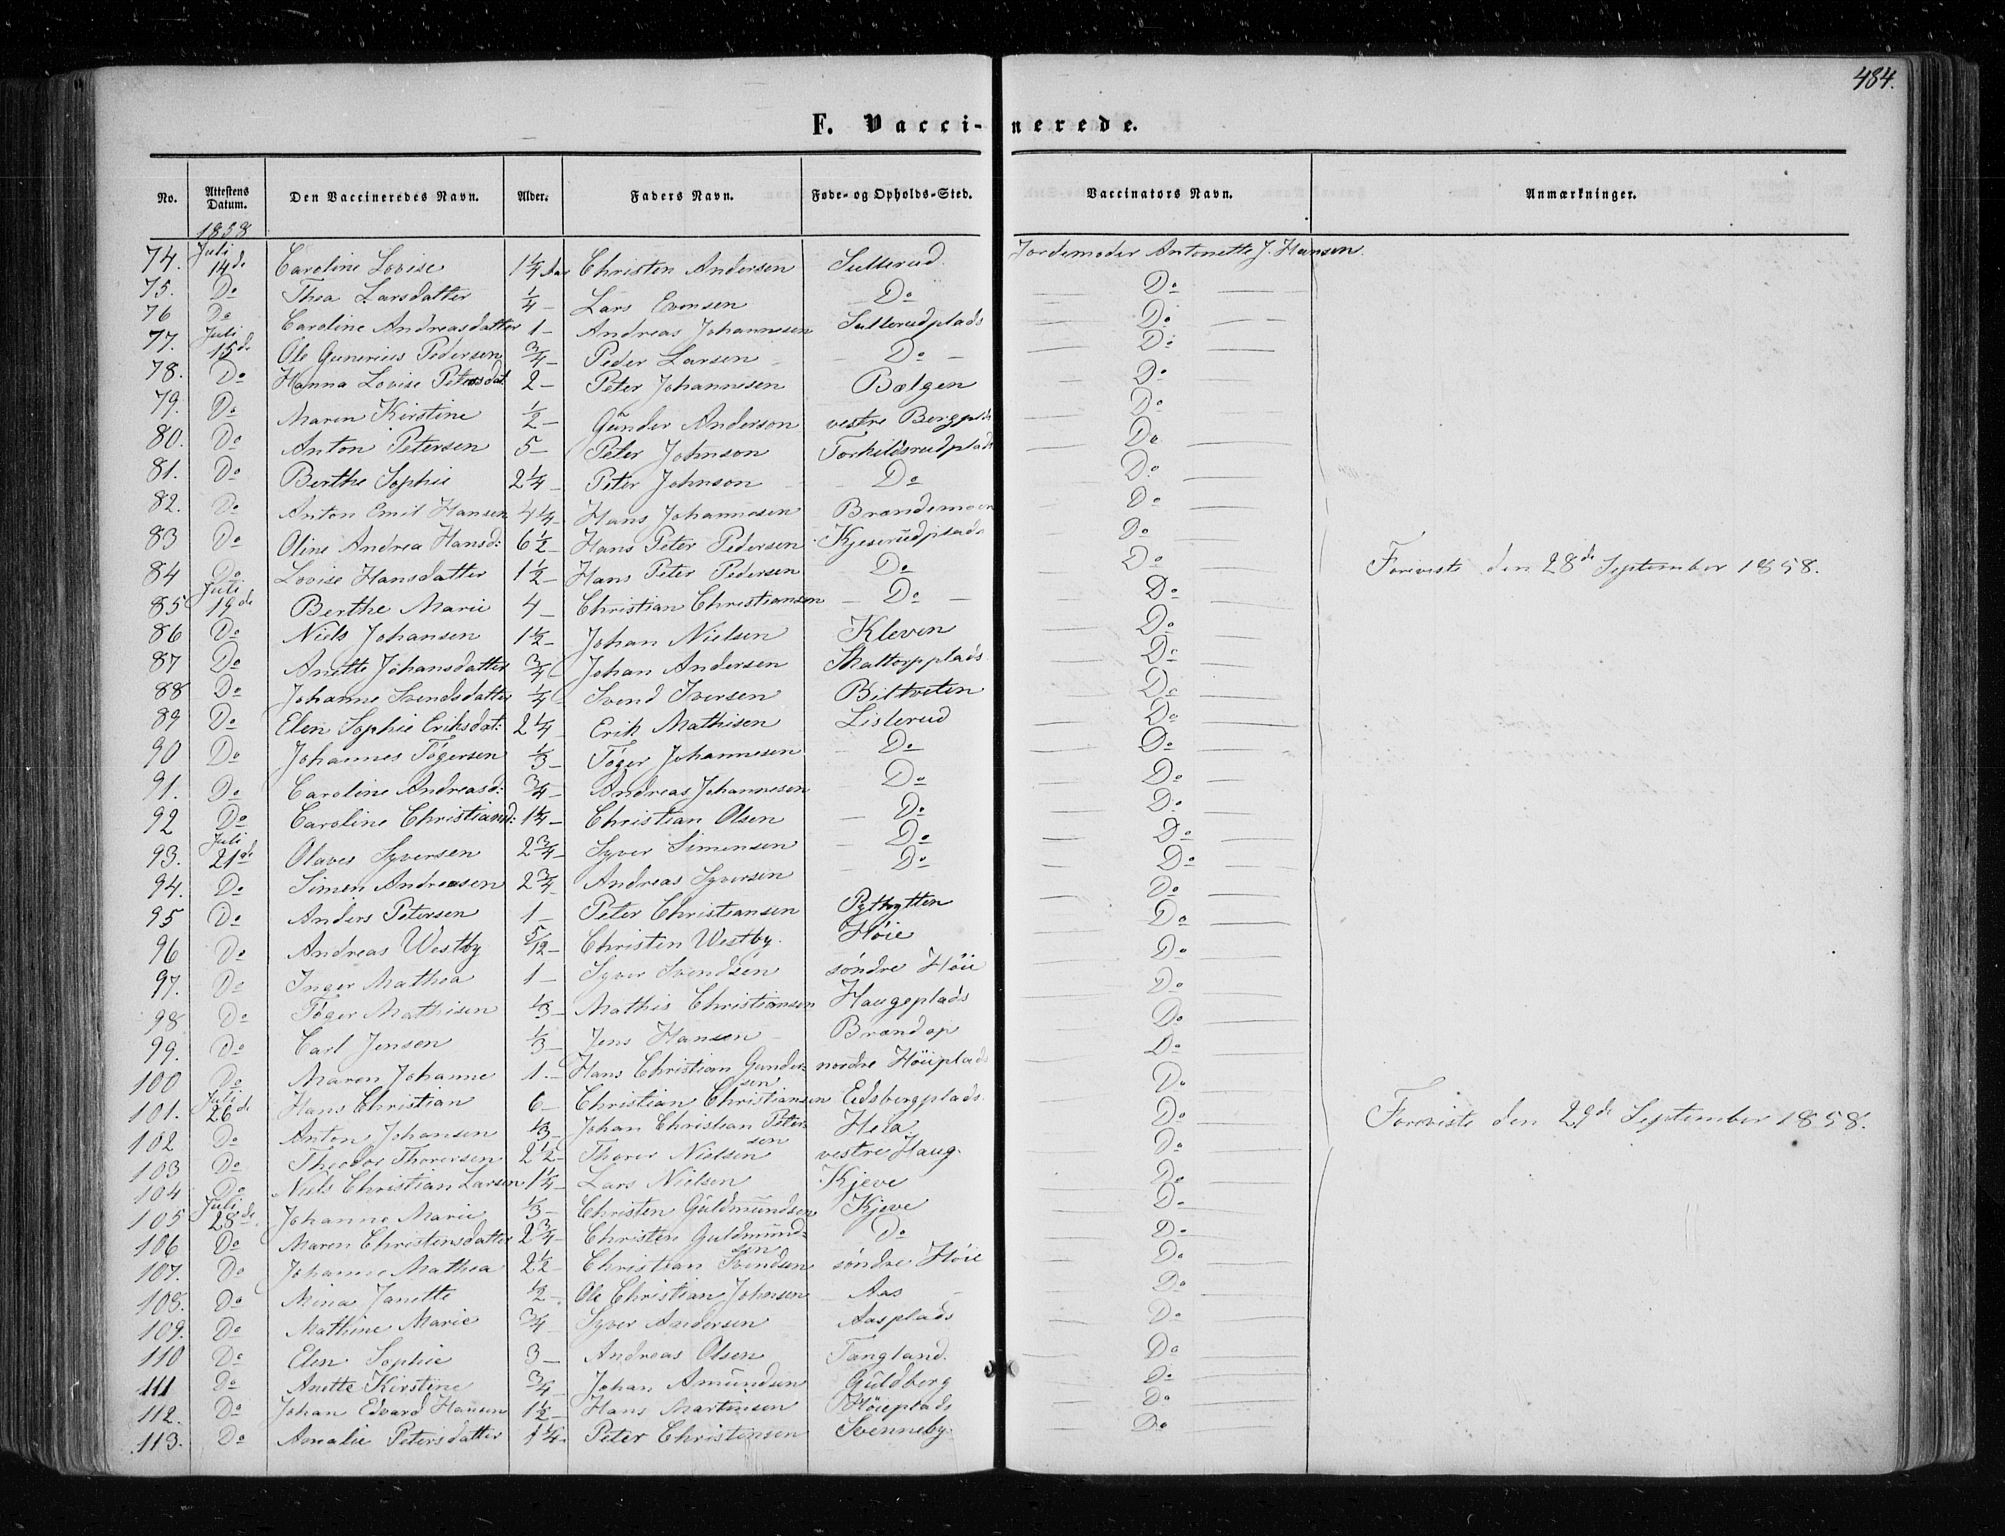 484.
F. Vacci-nerede.
No. Attestens Datum. Den Vaccineredes Navn. Alder. Faders Navn. Føde- og Opholds-Sted. Vaccinators Navn. Anmærkninger.
1858
74. Juli 14de Caroline Lovise 1 1/4 Aar Christen Andersen Sulterud Jordemoder Antonette J. Hansen.
75. Do Thea Larsdatter 1/4 – Lars Evensen Do — Do —
76 Do Caroline Andreasdatter 1 – Andreas Johannesen Sulterudplads — Do —
77. Juli 15de Ole Gunerius Pedersen 3/4 – Peder Larsen – Do – — Do —
78. Do Hanna Lovise Petersdat 2 – Peter Johannesen Bælgen — Do —
79. Do Maren Kirstine 1/2 – Gunder Anderson vestre Bergplds — Do —
80. Do Anton Petersen 5 – Peter Johnson Torkildsrudplads — Do —
81. Do Berthe Sophie 2 1/4 – Peter Johnson – Do — Do —
82. Do Anton Emil Hansen 4 1/4 – Hans Johannesen Brændemoen — Do —
83 Do Oline Andrea Hansd: 6 1/2 – Hans Peter Pedersen Kjeserudplads — Do —
84 Do Lovise Hansdatter 1 1/2 – Hans Peter Pedersen Do — Do — Foreviste den 28de September 1858.
85 Juli 19de Berthe Marie 4 – Christian Christiansen – Do – — Do —
86 Do Niels Johansen 1 1/2 – Johan Nielsen Kleven — Do —
87 Do Anette Johansdatter 3/4 Johan Andersen Skattorpplads — Do —
88 Do Johanne Svendsdatter 1/4 Svend Iversen Biltveten — Do —
89 Do Elen Sophie Eriksdat: 2 1/4 – Erik Mathisen Listerud — Do —
90 Do Johannes Tøgersen 1/3 – Tøger Johannesen – Do — Do —
91. Do Caroline Andreasd: 3/4 – Andreas Johannesen Do — Do —
92 Do Caroline Christiansd: 1 1/4 – Christian Olsen – Do — Do —
93. Juli 21de Olaves Syversen 2 3/4 – Syver Simensen – Do — Do —
94. Do Simen Andreasen 2 3/4 – Andreas Syversen – Do — Do —
95 Do Anders Petersen 1 – Peter Christiansen Pythytten — Do —
96 Do Andreas Westby 5/12 – Christen Westby. Høie — Do —
97. Do Inger Mathea 1 – Syver Svendsen søndre Høie — Do —
98 Do Tøger Mathisen 1/3 – Mathis Christiansen Haugeplads — Do —
99. Do Carl Jensen 1/3 – Jens Hansen Brændop — Do —
100 Do Maren Johanne 1. – Hans Christian Gundersen nordre Høieplads — Do —
101. Juli 26de Hans Christian 6 – Christian Christiansen Edsbergplads. — Do —
102 Do Anton Johansen 1/3 – Johan Christian Petersen Heia — Do — Foreviste den 29de September 1858.
103 Do Theodor Thorersen 2 1/2 – Thorer Nielsen vestre Haug. — Do —
104 Do Niels Christian Larsen 1 1/4 – Lars Nielsen Kjeve — Do —
105 Juli 28de Johanne Marie 1/3 – Christen Guldmundsen Kjeve — Do —
106 Do Maren Christensdatter 2 3/4 – Christen Guldmundsen Do — Do —
107. Do Johanne Mathea 2 1/2 – Christian Svendsen søndre Høie — Do —
108. Do Mina Janette 1/2 – Ole Christian Johnsen – Aas – — Do —
109. Do Mathine Marie 3/4 – Syver Andersen Aasplads — Do —
110 Do Elen Sophie 3 – Andreas Olsen Tangland. — Do —
111 Do Anette Kirstine 3/4 – Johan Amundsen Guldberg — Do —
112. Do Johan Edvard Hansen 1 1/2 – Hans Martinsen Høieplads — Do —
113. Do Amalie Petersdatter 1 1/4. Peter Christensen Svenneby. — Do —